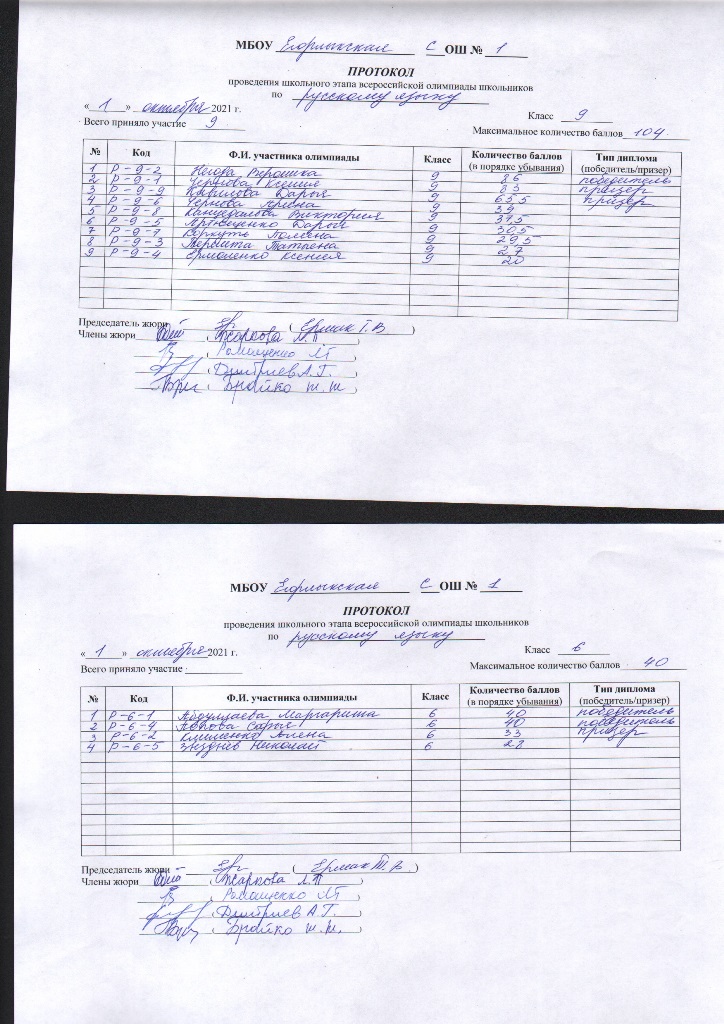 МБОУ Егорлыкская С ОШ № 1
ПРОТОКОЛ
проведения школьного этапа всероссийской олимпиады школьников
по русскому языку
« 1 » октября 2021 г.
Класс 9
Всего приняло участие 9
Максимальное количество баллов 104
№ Код Ф.И. участника олимпиады Класс Количество баллов (в порядке убывания) Тип диплома (победитель/призер)
1 Р-9-2 Вероника 9 86 победитель
2 Р-9-1 Ксения 9 83 призер
3 Р-9-9 Дарья 9 65,5 призер
4 Р-9-6 Чернова 9 39
5 Р-9-8 Виктория 9 37,5
6 Р-9-5 Дарья 9 30,5
7 Р-9-7 Полина 9 29,5
8 Р-9-3 Татьяна 9 27
9 Р-9-4 Ермоленко Ксения 9 20
Председатель жюри ( Ермак Т.В )
Члены жюри ( Жаркова Л.П )
( Ромащенко )
( Дмитриев А.Г. )
( Бройко )
МБОУ Егорлыкская С ОШ № 1
ПРОТОКОЛ
проведения школьного этапа всероссийской олимпиады школьников
по русскому языку
« 1 » октября 2021 г.
Класс 6
Всего приняло участие
Максимальное количество баллов 40
№ Код Ф.И. участника олимпиады Класс Количество баллов (в порядке убывания) Тип диплома (победитель/призер)
1 Р-6-1 Абдулаева Маргарита 6 40 победитель
2 Р-6-4 Попова Софья 6 40 победитель
3 Р-6-2 Клименко Алена 6 33 призер
4 Р-6-5 Николай 6 28
Председатель жюри ( Ермак Т.В )
Члены жюри ( Жаркова Л.П )
( Ромащенко )
( Дмитриев А.Г. )
( Бройко )